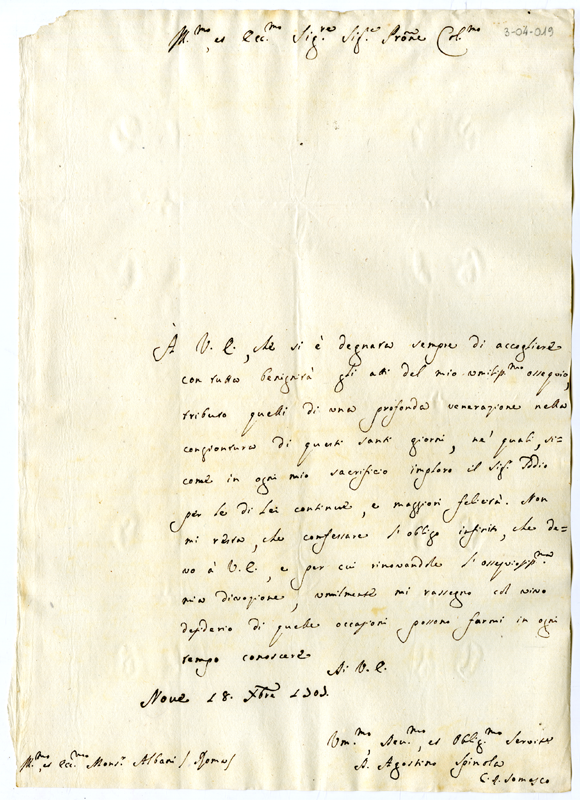 Ill.mo, et Ecc.mo Sig.re Sig.re Prōne Col.mo
3-04-019
À V. E., che si è degnata sempre di accogliere
con tutta benignità gli atti del mio umiliss.mo ossequio,
tributo quelli di una profonda venerazione nella
congiontura di questi santi giorni, ne' quali, si=
come in ogni mio sacrificio imploro il Sig.r Iddio
per le di Lei continue, e maggiori felicità. Non
mi resta, che confessare l'obligo infinito, che de=
vo à V. E., e per cui rinovandole l'ossequiosiss.ma
mia divozione, umilmente mi rassegno col vivo
desiderio di quelle occasioni possono farmi in ogni
tempo conoscere
Di V. E.
Nove 18. Xbre 1703.
Um.mo, Dev.mo, et Oblig.mo Servitore
D. Agostino Spinola
C. R. Somasco
Ill.mo, et Ecc.mo Mons.r Albani / Roma /